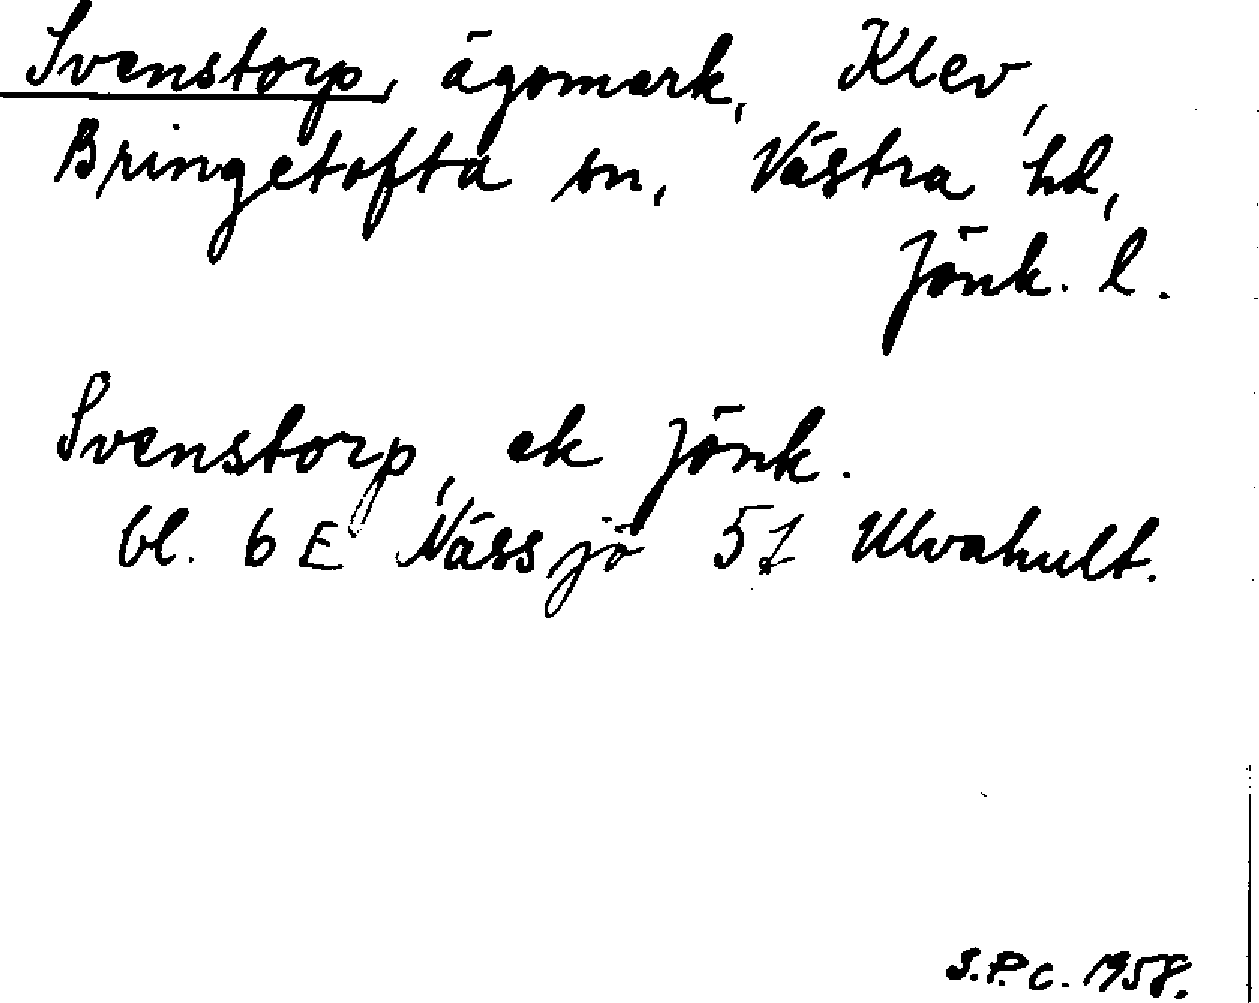 Svenstorp, ägomark, Klev,
Bringetofta sn, Västra hd,
Jönk. l.
Svenstorp, ek Jönk.
bl. 6 E Nässjö 5 f Ulvahult.
S.P.C. 1958.